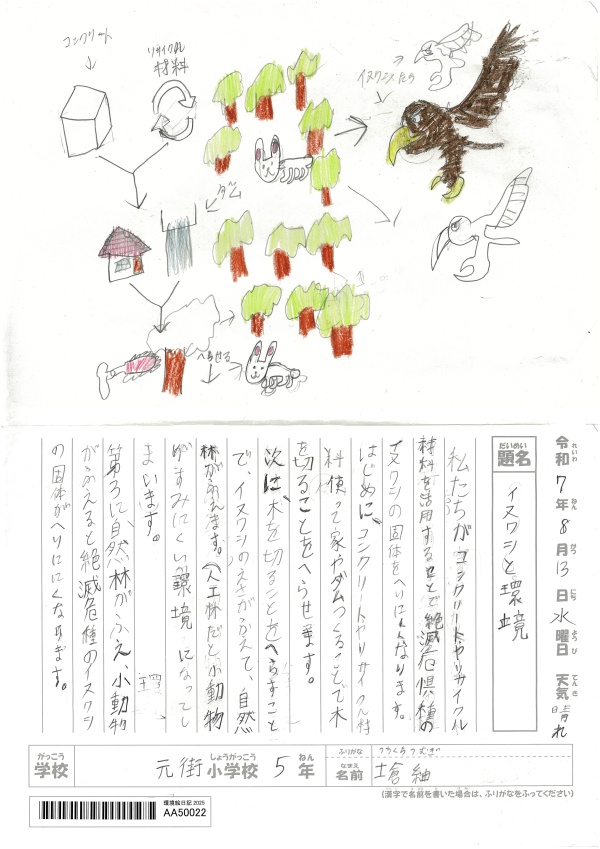 コンクリート
リサイクル
材料
イヌワシたち
ダム
へらせる
令和7年8月13日水曜日 天気 晴れ
れいわ ねん がつ にち ようび てんき
だいめい
題名
イヌワシと環境
私たちがコンクリートやリサイクル
材料を活用することで絶滅危惧種の
イヌワシの固体をへりにくくなります。
はじめに、コンクリートやリサイクル材
料使って家やダムつくることで木
を切ることをへらせます。
次に、木を切ることをへらすこと
で、イヌワシのえさがふえて、自然
林がふえます。(人工林だと小動物
がすみにくい環境になってし
まいます。
環
第ろに、自然林がふえ、小動物
がふえると絶滅危種のイヌワシ
の固体がへりににくなります。
がっこう
学校
元街
しょうがっこう
小学校
5
ねん
年
ふりがな
なまえ
名前
紬
(漢字で名前を書いた場合は、ふりがなをふってください)
環境絵日記 2025
AA50022